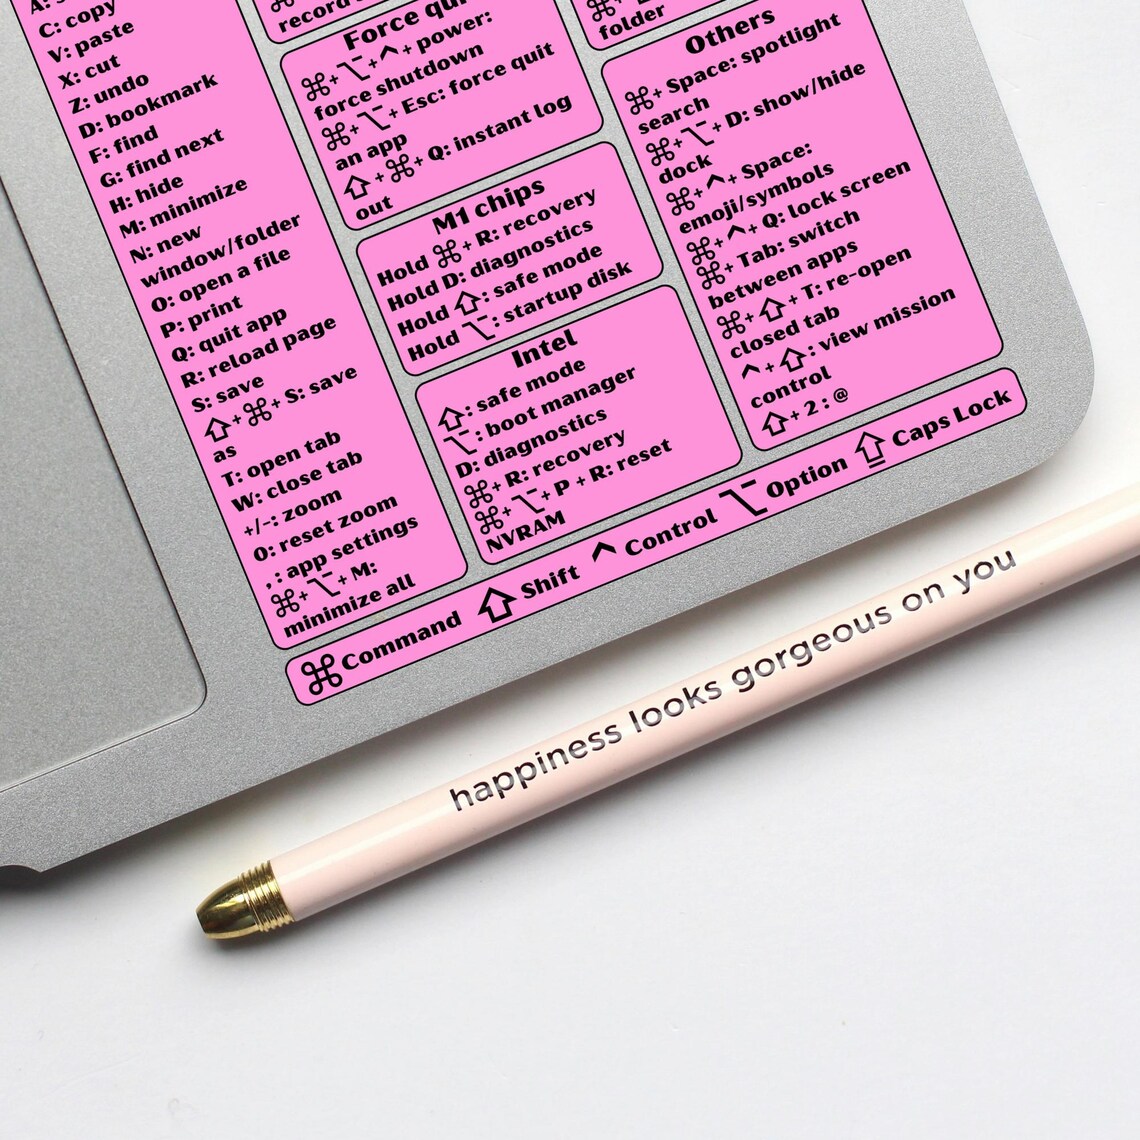 C: copy
V: paste
X: cut
Z: undo
D: bookmark
F: find
G: find next
H: hide
M: minimize
N: new
window/folder
O: open a file
P: print
Q: quit app
R: reload page
S: save
⇧+⌘+ S: save
as
T: open tab
W: close tab
+/-: zoom
0: reset zoom
, : app settings
⌘+⌥+ M:
minimize all
Force
⌘+⌥+^+ power:
force shutdown
⌘+⌥+ Esc: force quit
an app
⇧+⌘+ Q: instant log
out
M1 chips
Hold ⌘+ R: recovery
Hold D: diagnostics
Hold ⇧: safe mode
Hold ⌥: startup disk
Intel
⇧: safe mode
⌥: boot manager
D: diagnostics
⌘+ R: recovery
⌘+⌥+ P + R: reset
NVRAM
folder
Others
⌘+ Space: spotlight
search
⌘+⌥+ D: show/hide
dock
⌘+^+ Space:
emoji/symbols
⌘+^+ Q: lock screen
⌘+ Tab: switch
between apps
⌘+⇧+ T: re-open
closed tab
^+⇧: view mission
control
⇧+ 2 : @
⌘ Command ⇧ Shift ^ Control ⌥ Option ⇪ Caps Lock
happiness looks gorgeous on you